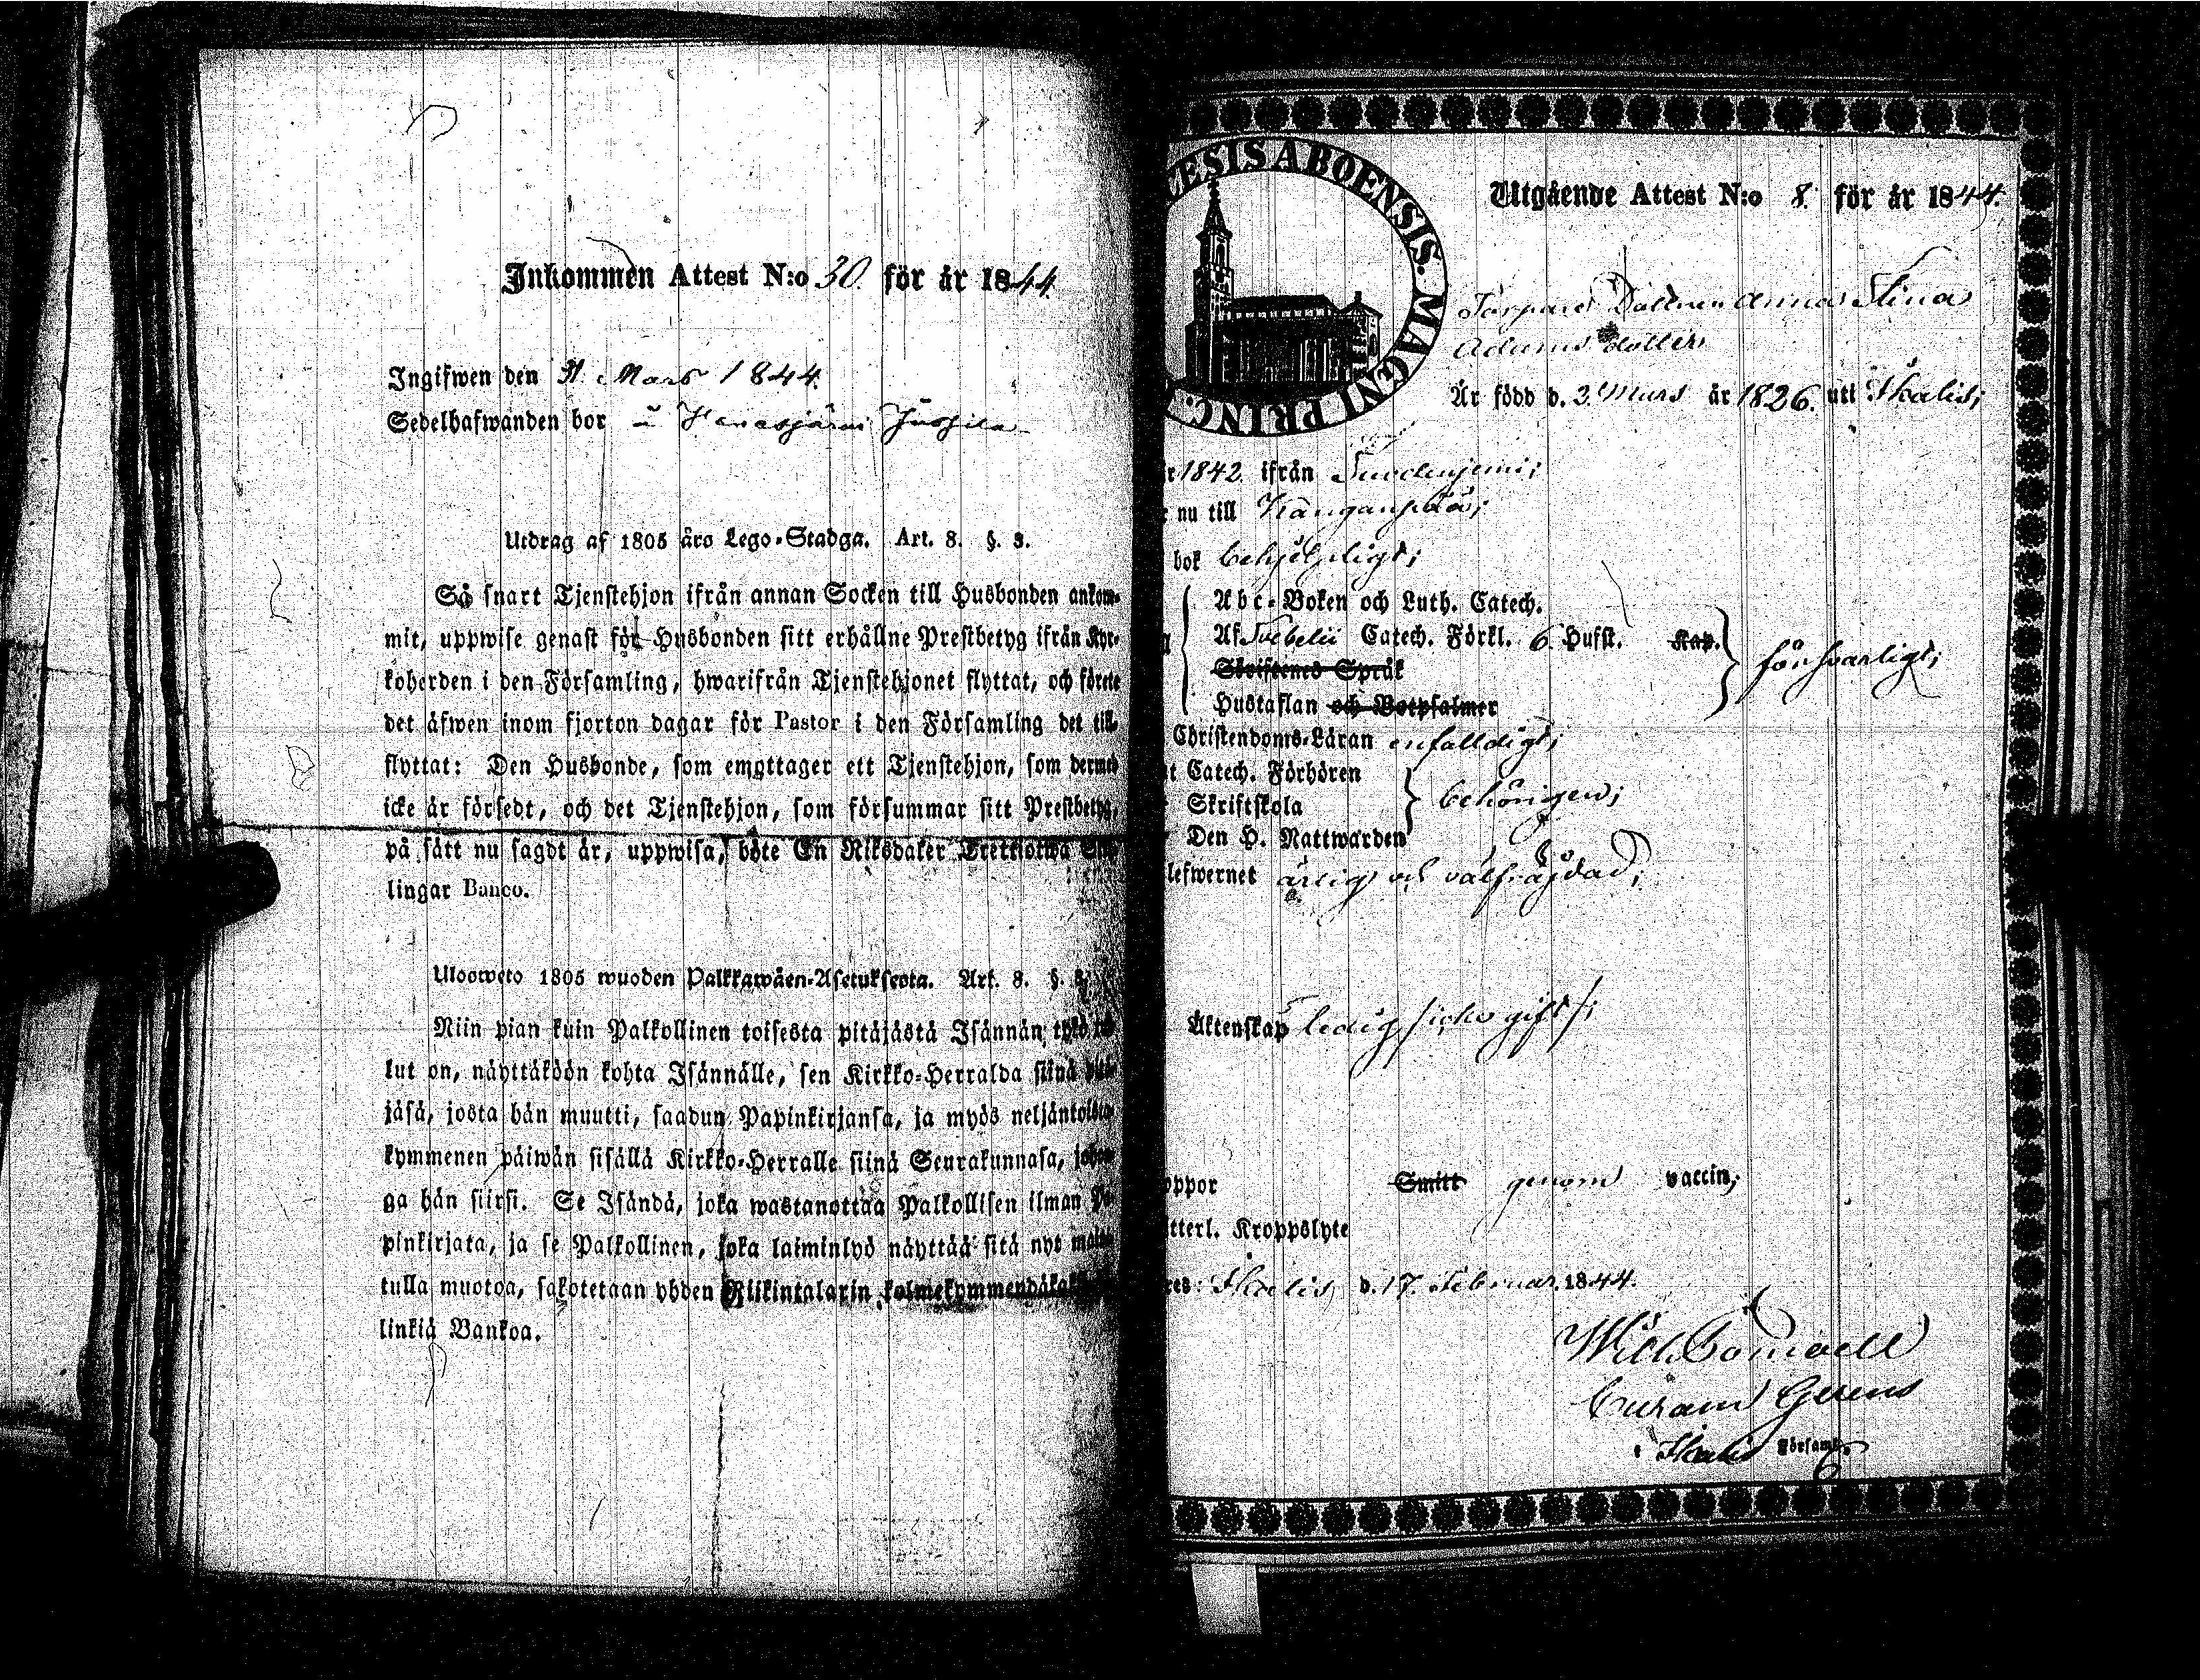 Inkommen Attest N:o 30. för år 1844.
Ingifwen den 31. Mars 1844.
Sedelhafwanden bor
Utdrag af 1805 års Lego-Stadga. Art. 8. §. 3.
Så snart Tjenstehjon ifrån annan Socken till Husbonden ankom-
mit, uppwise genast för Husbonden sitt erhållne Prestbetyg ifrån Kyr-
koherden i den Församling, hwarifrån Tjenstehjonet flyttat, och förete
det äfwen inom fjorton dagar för Pastor i den Församling det till-
flyttat: Den Husbonde, som emottager ett Tjenstehjon, som dermed
icke är försedt, och det Tjenstehjon, som försummar sitt Prestbetyg,
på sätt nu sagdt är, uppwisa, böte En Riksdaler Trettiotwå
lingar Banco.
Ulosweto 1805 wuoden Palkkawäen-Asetuksesta. Art. 8. §. 3.
Niin pian kuin Palkollinen toisesta pitäjästä Isännän tykö
lut on, näyttäköön kohta Isännälle, sen Kirkko-Herralda siinä
jäsä, josta hän muutti, saadun Papinkirjansa, ja myös neljäntoista-
kymmenen päiwän sisällä Kirkko-Herralle siinä Seurakunnasa,
ga hän siirsi. Se Isändä, joka wastanottaa Palkollisen ilman Pa-
pinkirjata, ja se Palkollinen, joka laiminlyö näyttää sitä nyt
tulla muotoa, sakotetaan yhden Riikintalarin
linkiä Bankoa.
ESIS ABOENSIS. MAGNI PRINC.
Utgående Attest N:o 8. för år 1844.
Dottren Anna Stina
Adams dotter
Är född d. 3. Mars år 1826. uti Ikalis;
1842. ifrån
nu till Kanganpää;
bok behjelpligt;
Abc-Boken och Luth. Catech.
Af Svebelii Catech. Förkl. 6. Hufst. Kap.
Skriftenes Språk
Hustaflan och Botpsalmer
försvarligt;
Christendoms-Läran enfaldigt;
Catech. Förhören
Skriftskola
Den H. Nattwarden
behörigen;
lefwernet ärlig och välfräjdad;
Äktenskap ledig /icke gift/;
oppor Smitt genom vaccin;
tterl. Kroppslyte
res: Ikalis d. 17. Februar. 1844.
Församl.